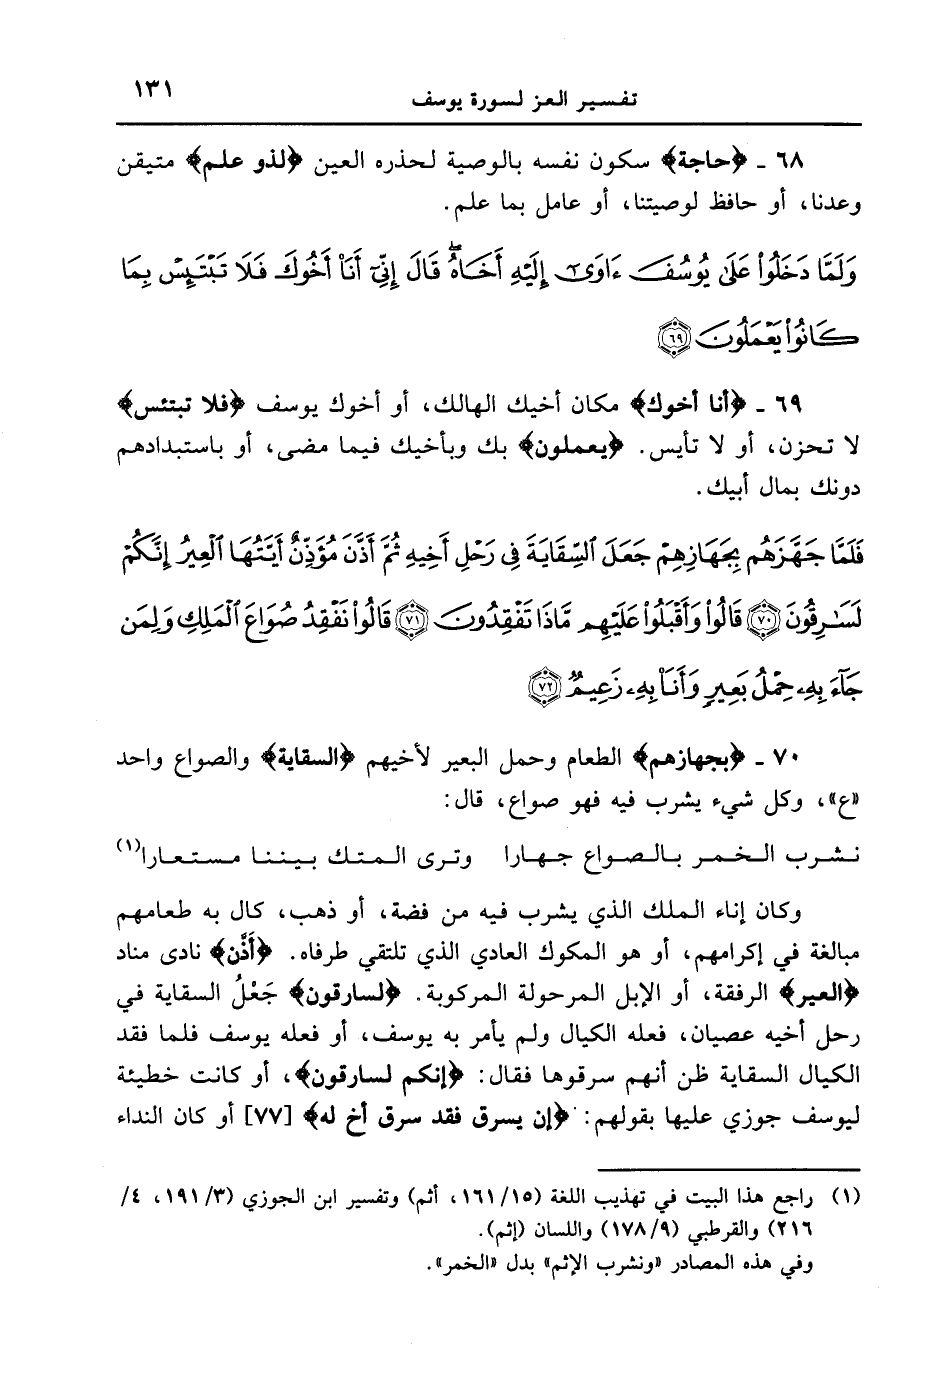 تفسير العز لسورة يوسف ١٣١
٦٨ ـ ﴿حاجة﴾ سكون نفسه بالوصية لحذره العين ﴿لذو علم﴾ متيقن
وعدنا، أو حافظ لوصيتنا، أو عامل بما علم.
وَلَمَّا دَخَلُوا۟ عَلَىٰ يُوسُفَ ءَاوَىٰٓ إِلَيْهِ أَخَاهُ ۖ قَالَ إِنِّىٓ أَنَا۠ أَخُوكَ فَلَا تَبْتَئِسْ بِمَا
كَانُوا۟ يَعْمَلُونَ ﴿٦٩﴾
٦٩ ـ ﴿أنا أخوك﴾ مكان أخيك الهالك، أو أخوك يوسف ﴿فلا تبتئس﴾
لا تحزن، أو لا تأيس. ﴿يعملون﴾ بك وبأخيك فيما مضى، أو باستبدادهم
دونك بمال أبيك.
فَلَمَّا جَهَّزَهُم بِجَهَازِهِمْ جَعَلَ ٱلسِّقَايَةَ فِى رَحْلِ أَخِيهِ ثُمَّ أَذَّنَ مُؤَذِّنٌ أَيَّتُهَا ٱلْعِيرُ إِنَّكُمْ
لَسَـٰرِقُونَ ﴿٧٠﴾ قَالُوا۟ وَأَقْبَلُوا۟ عَلَيْهِم مَّاذَا تَفْقِدُونَ ﴿٧١﴾ قَالُوا۟ نَفْقِدُ صُوَاعَ ٱلْمَلِكِ وَلِمَن
جَآءَ بِهِۦ حِمْلُ بَعِيرٍ وَأَنَا۠ بِهِۦ زَعِيمٌ ﴿٧٢﴾
٧٠ ـ ﴿بجهازهم﴾ الطعام وحمل البعير لأخيهم ﴿السقاية﴾ والصواع واحد
«ع»، وكل شيء يشرب فيه فهو صواع، قال:
نشرب الخمر بالصواع جهارا وترى المتك بيننا مستعارا(١)
وكان إناء الملك الذي يشرب فيه من فضة، أو ذهب، كال به طعامهم
مبالغة في إكرامهم، أو هو المكوك العادي الذي تلتقي طرفاه. ﴿أَذَّن﴾ نادى مناد
﴿العير﴾ الرفقة، أو الإبل المرحولة المركوبة. ﴿لسارقون﴾ جَعْلُ السقاية في
رحل أخيه عصيان، فعله الكيال ولم يأمر به يوسف، أو فعله يوسف فلما فقد
الكيال السقاية ظن أنهم سرقوها فقال: ﴿إنكم لسارقون﴾، أو كانت خطيئة
ليوسف جوزي عليها بقولهم: ﴿إن يسرق فقد سرق أخ له﴾ [٧٧] أو كان النداء
(١) راجع هذا البيت في تهذيب اللغة (١٥/ ١٦١، أثم) وتفسير ابن الجوزي (٣/ ١٩١، ٤/
٢١٦) والقرطبي (٩/ ١٧٨) واللسان (إثم).
وفي هذه المصادر «ونشرب الإثم» بدل «الخمر».